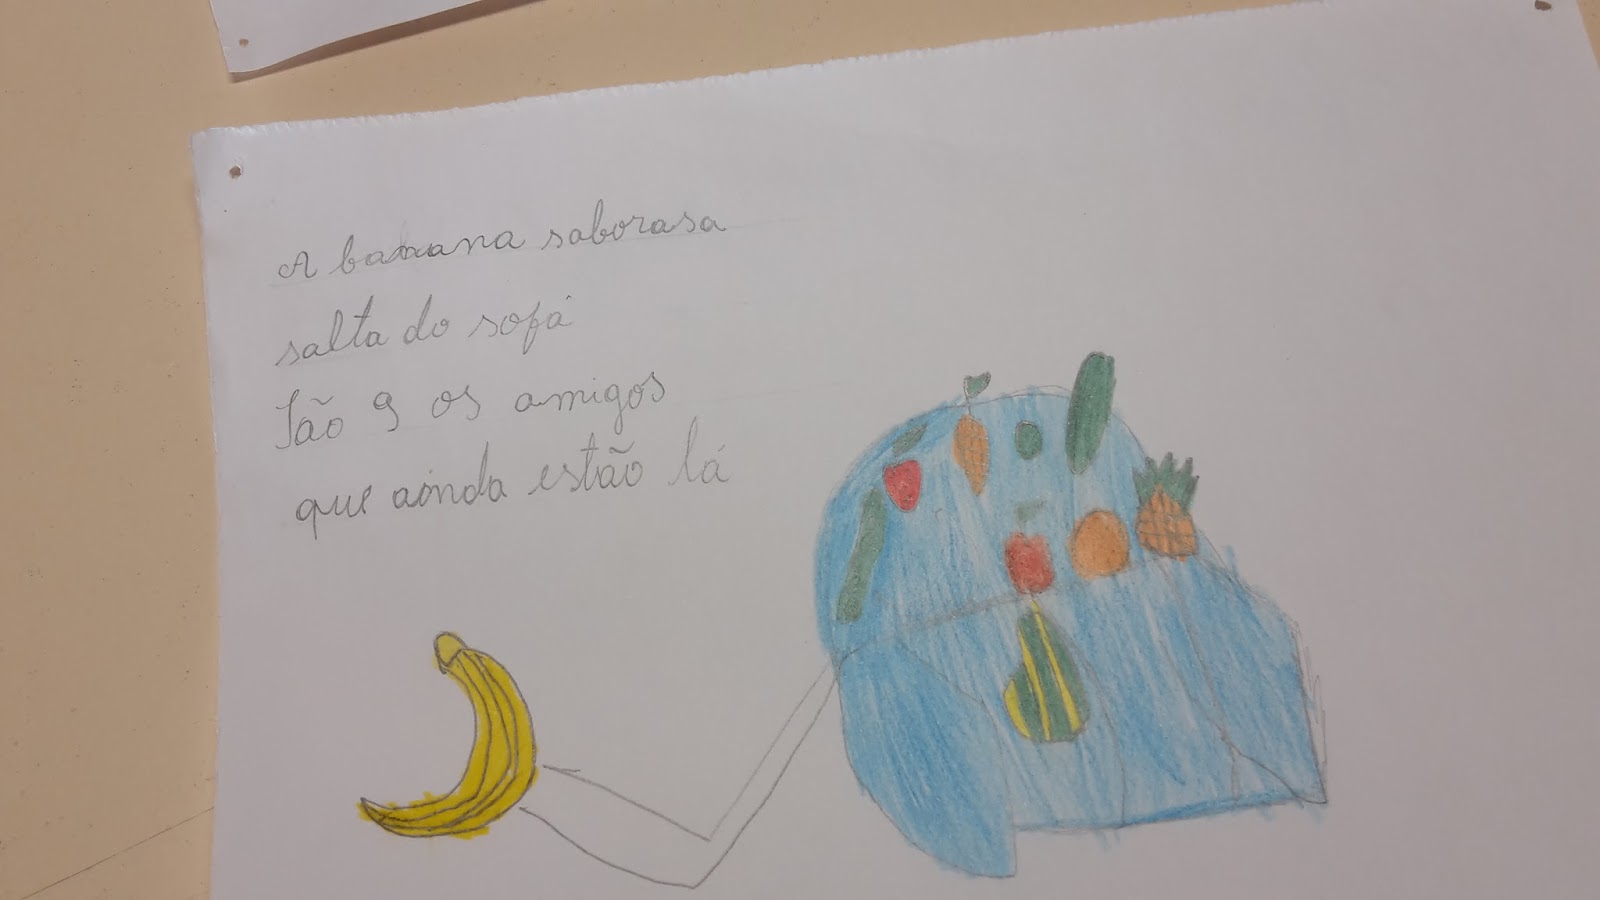 A banana saborasa
salta do sofá
São 9 os amigos
que ainda estão lá